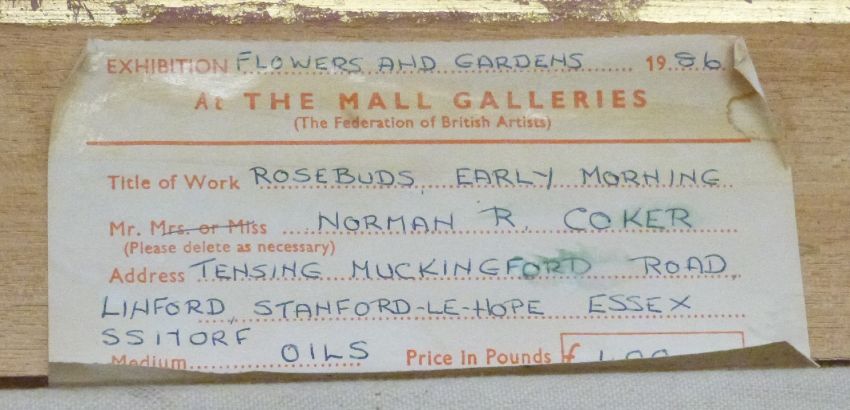 EXHIBITION FLOWERS AND GARDENS 1986
At THE MALL GALLERIES
(The Federation of British Artists)
Title of Work ROSEBUDS, EARLY MORNING
Mr. Mrs. or Miss NORMAN R. COKER
(Please delete as necessary)
Address TENSING MUCKINGFORD ROAD,
LINFORD, STANFORD-LE-HOPE ESSEX
SS17ORF
Medium OILS Price in Pounds £